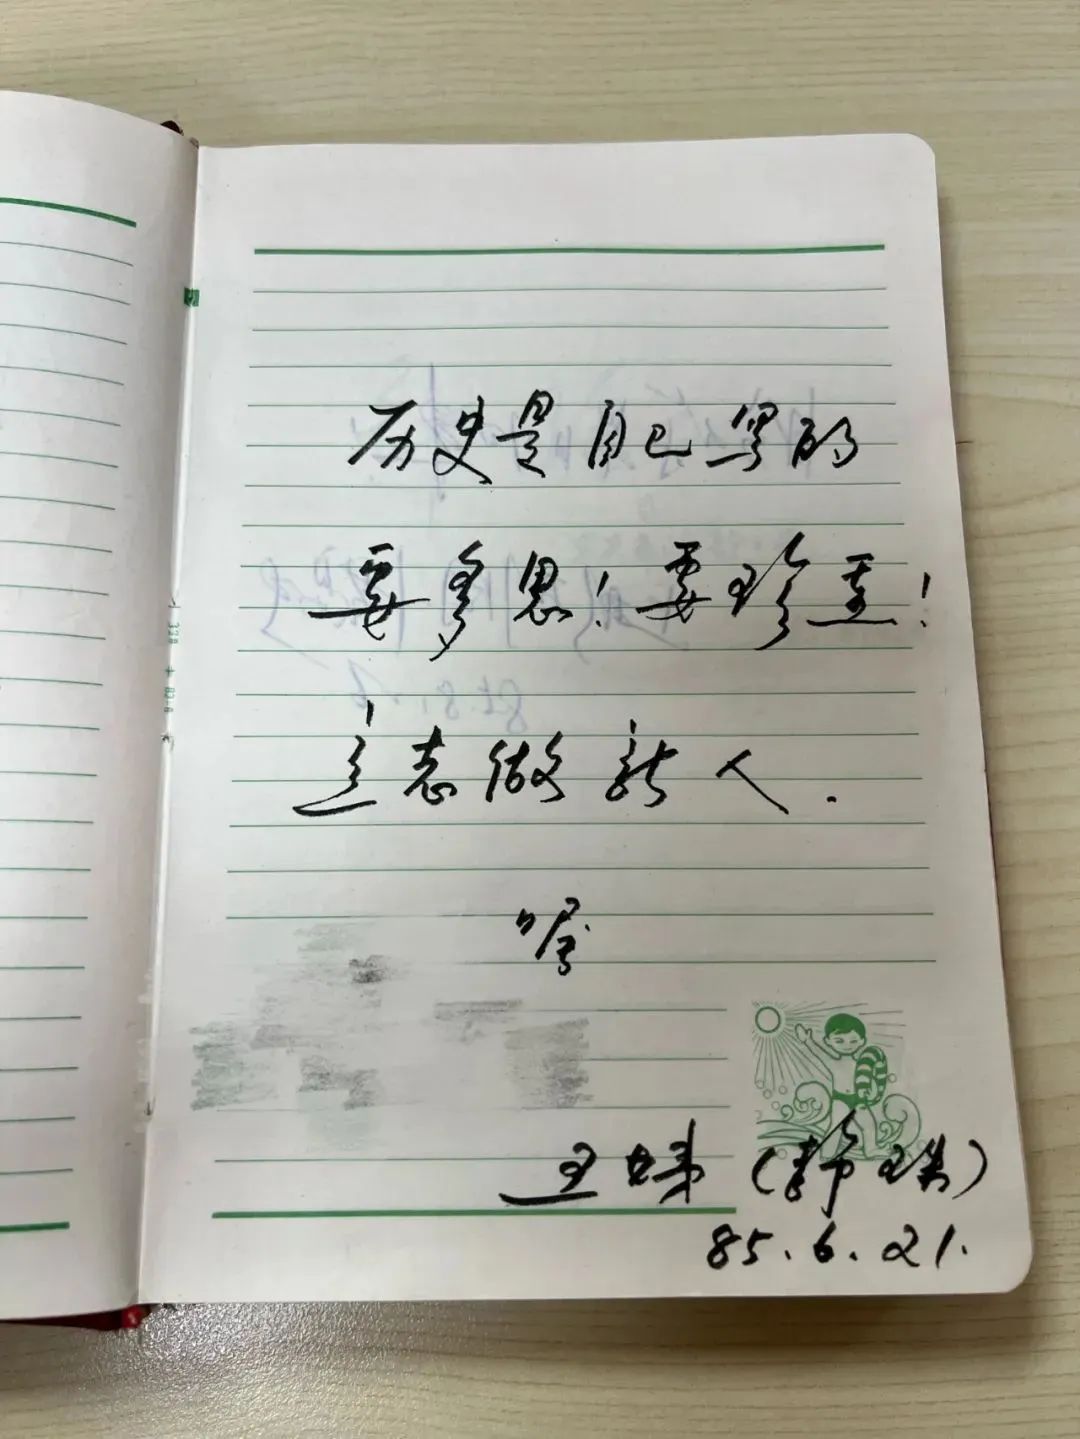 历史是自己写的
要多思！要珍重！
立志做新人．
嘱
王妹（静珠）
85.6.21.